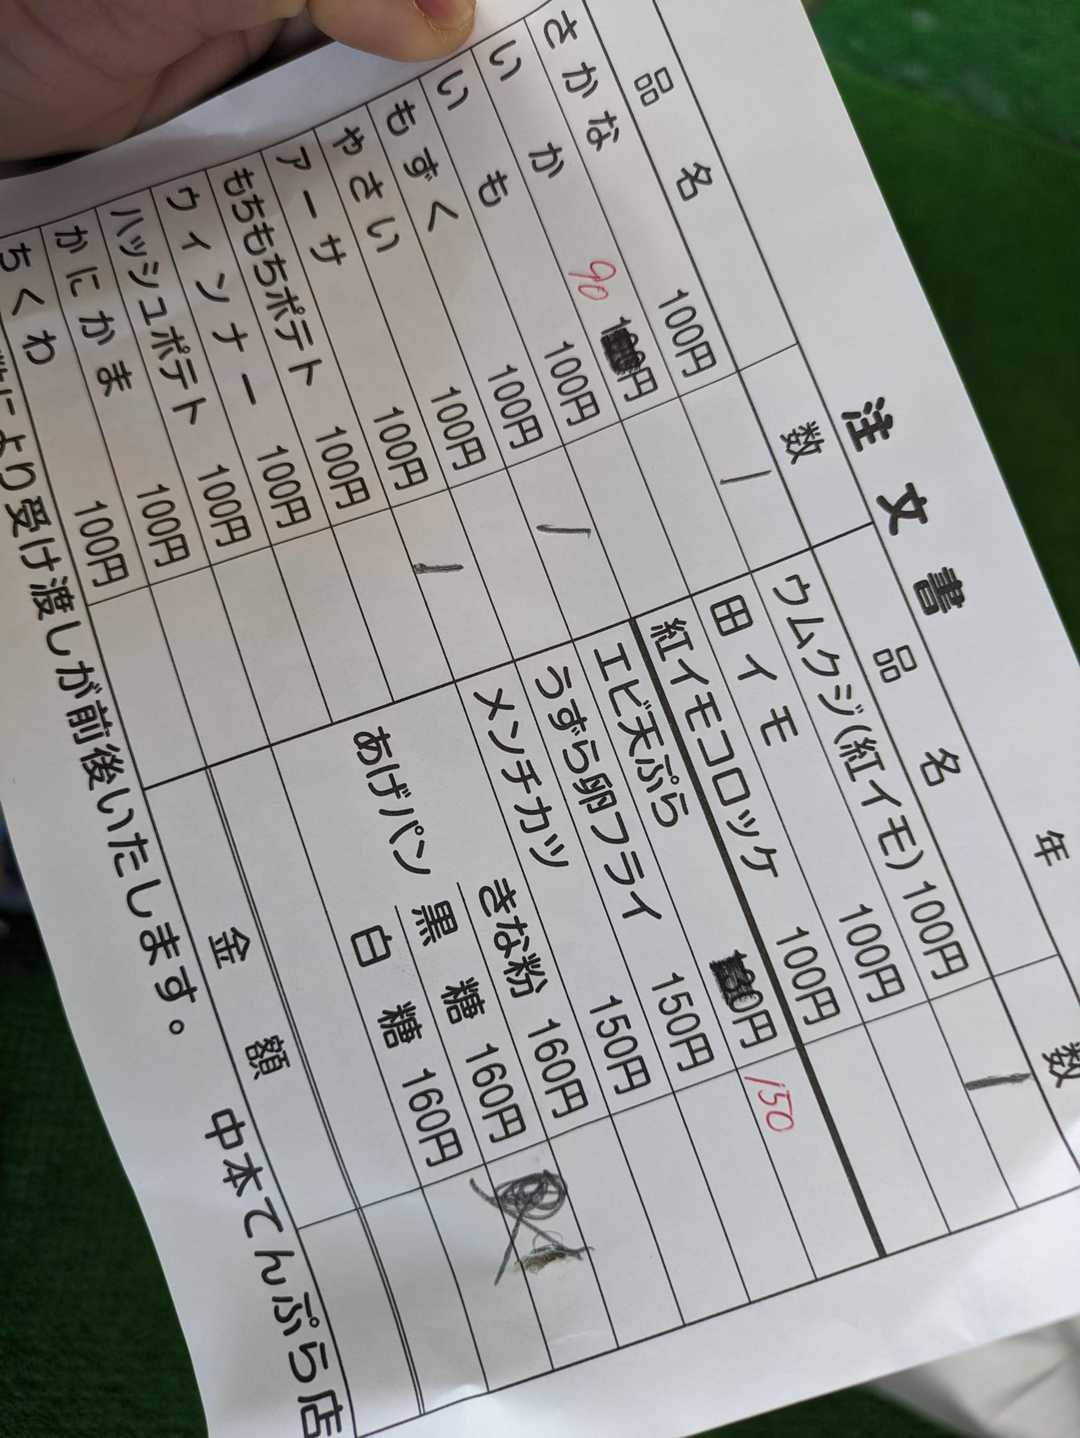 注文書
年
品名 数 品名 数
さかな 100円 1 ウムクジ(紅イモ) 100円 1
いか 90 円 田イモ 100円
いも 100円 紅イモコロッケ 100円
もずく 100円 1 エビ天ぷら 0円 150
やさい 100円 うずら卵フライ 150円
アーサ 100円 1 メンチカツ 150円
もちもちポテト 100円 あげパン きな粉 160円
ウィンナー 100円 黒糖 160円
ハッシュポテト 100円 白糖 160円
かにかま 100円
ちくわ 100円 金額
により受け渡しが前後いたします。
中本てんぷら店